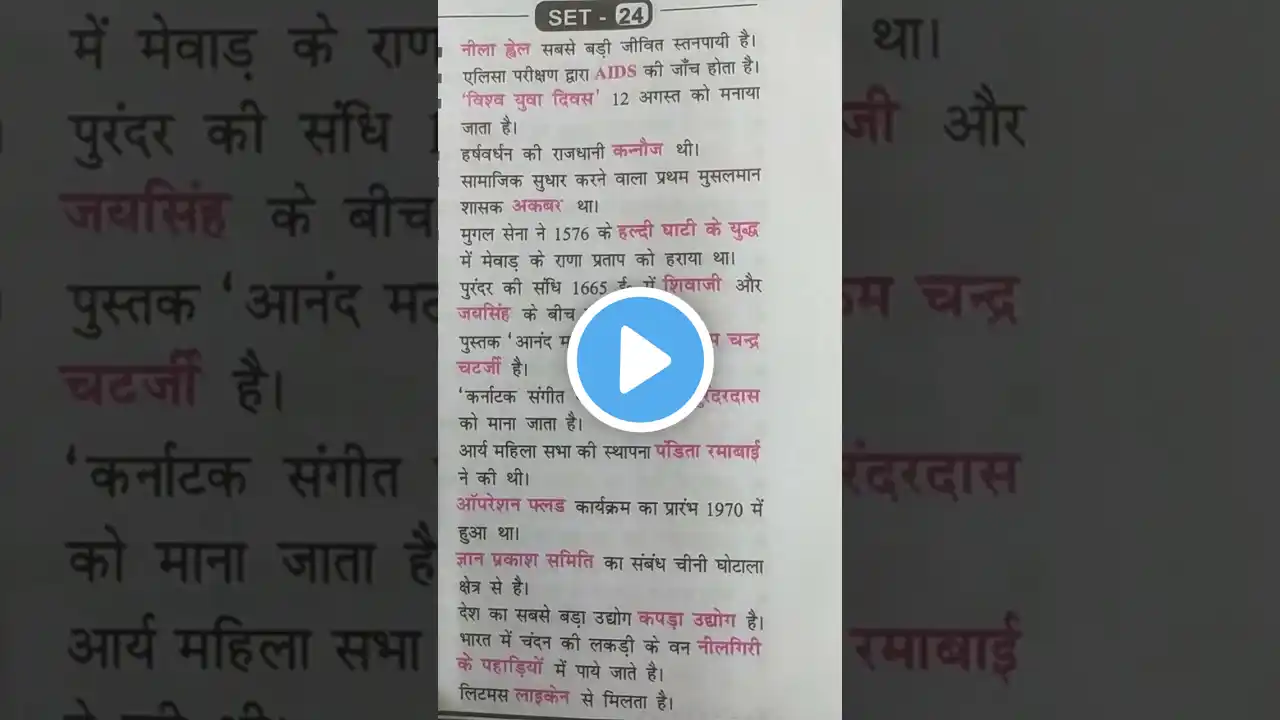 SET - 24
नीला ह्वेल सबसे बड़ी जीवित स्तनपायी है।
एलिसा परीक्षण द्वारा AIDS की जाँच होता है।
'विश्व युवा दिवस' 12 अगस्त को मनाया
जाता है।
हर्षवर्धन की राजधानी कन्नौज थी।
सामाजिक सुधार करने वाला प्रथम मुसलमान
शासक अकबर था।
मुगल सेना ने 1576 के हल्दी घाटी के युद्ध
में मेवाड़ के राणा प्रताप को हराया था।
पुरंदर की संधि 1665 ई॰ में शिवाजी और
जयसिंह के बीच
पुस्तक 'आनंद चन्द्र
चटर्जी है।
'कर्नाटक संगीत पुरंदरदास
को माना जाता है।
आर्य महिला सभा की स्थापना पंडिता रमाबाई
ने की थी।
ऑपरेशन फ्लड कार्यक्रम का प्रारंभ 1970 में
हुआ था।
ज्ञान प्रकाश समिति का संबंध चीनी घोटाला
क्षेत्र से है।
देश का सबसे बड़ा उद्योग कपड़ा उद्योग है।
भारत में चंदन की लकड़ी के वन नीलगिरी
के पहाड़ियों में पाये जाते है।
लिटमस लाइकेन से मिलता है।